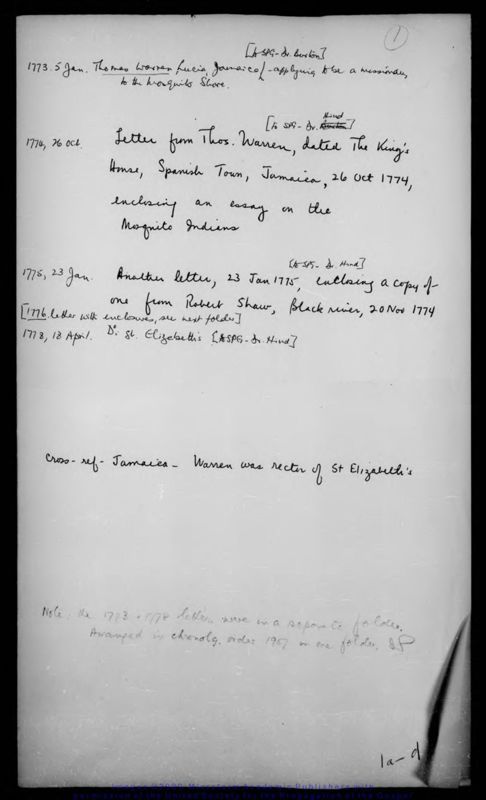 [to SPG - Dr. Burton]
1
1773. 5 Jan. Thomas Warren Lucia, Jamaica [- applying to be a missionary
to the Mosquito Shore.
[to SPG - Dr. Hind]
1774, 26 Oct. Letter from Thos. Warren, dated The King's
House, Spanish Town, Jamaica, 26 Oct 1774,
enclosing an essay on the
Mosquito Indians
[to SPG - Dr Hind]
1775, 23 Jan. Another letter, 23 Jan 1775, enclosing a copy of
one from Robert Shaw, Black river, 20 Nov 1774
[1776 letter with enclosures, see next folder]
1778, 18 April. Do: St. Elizabeth's [to SPG - Dr. Hind]
Cross-ref - Jamaica - Warren was rector of St Elizabeth's
Note: the 1773 - 1778 letters were in a separate folder.
Arranged in chronolg. order 1967 in one folder,
1a-d